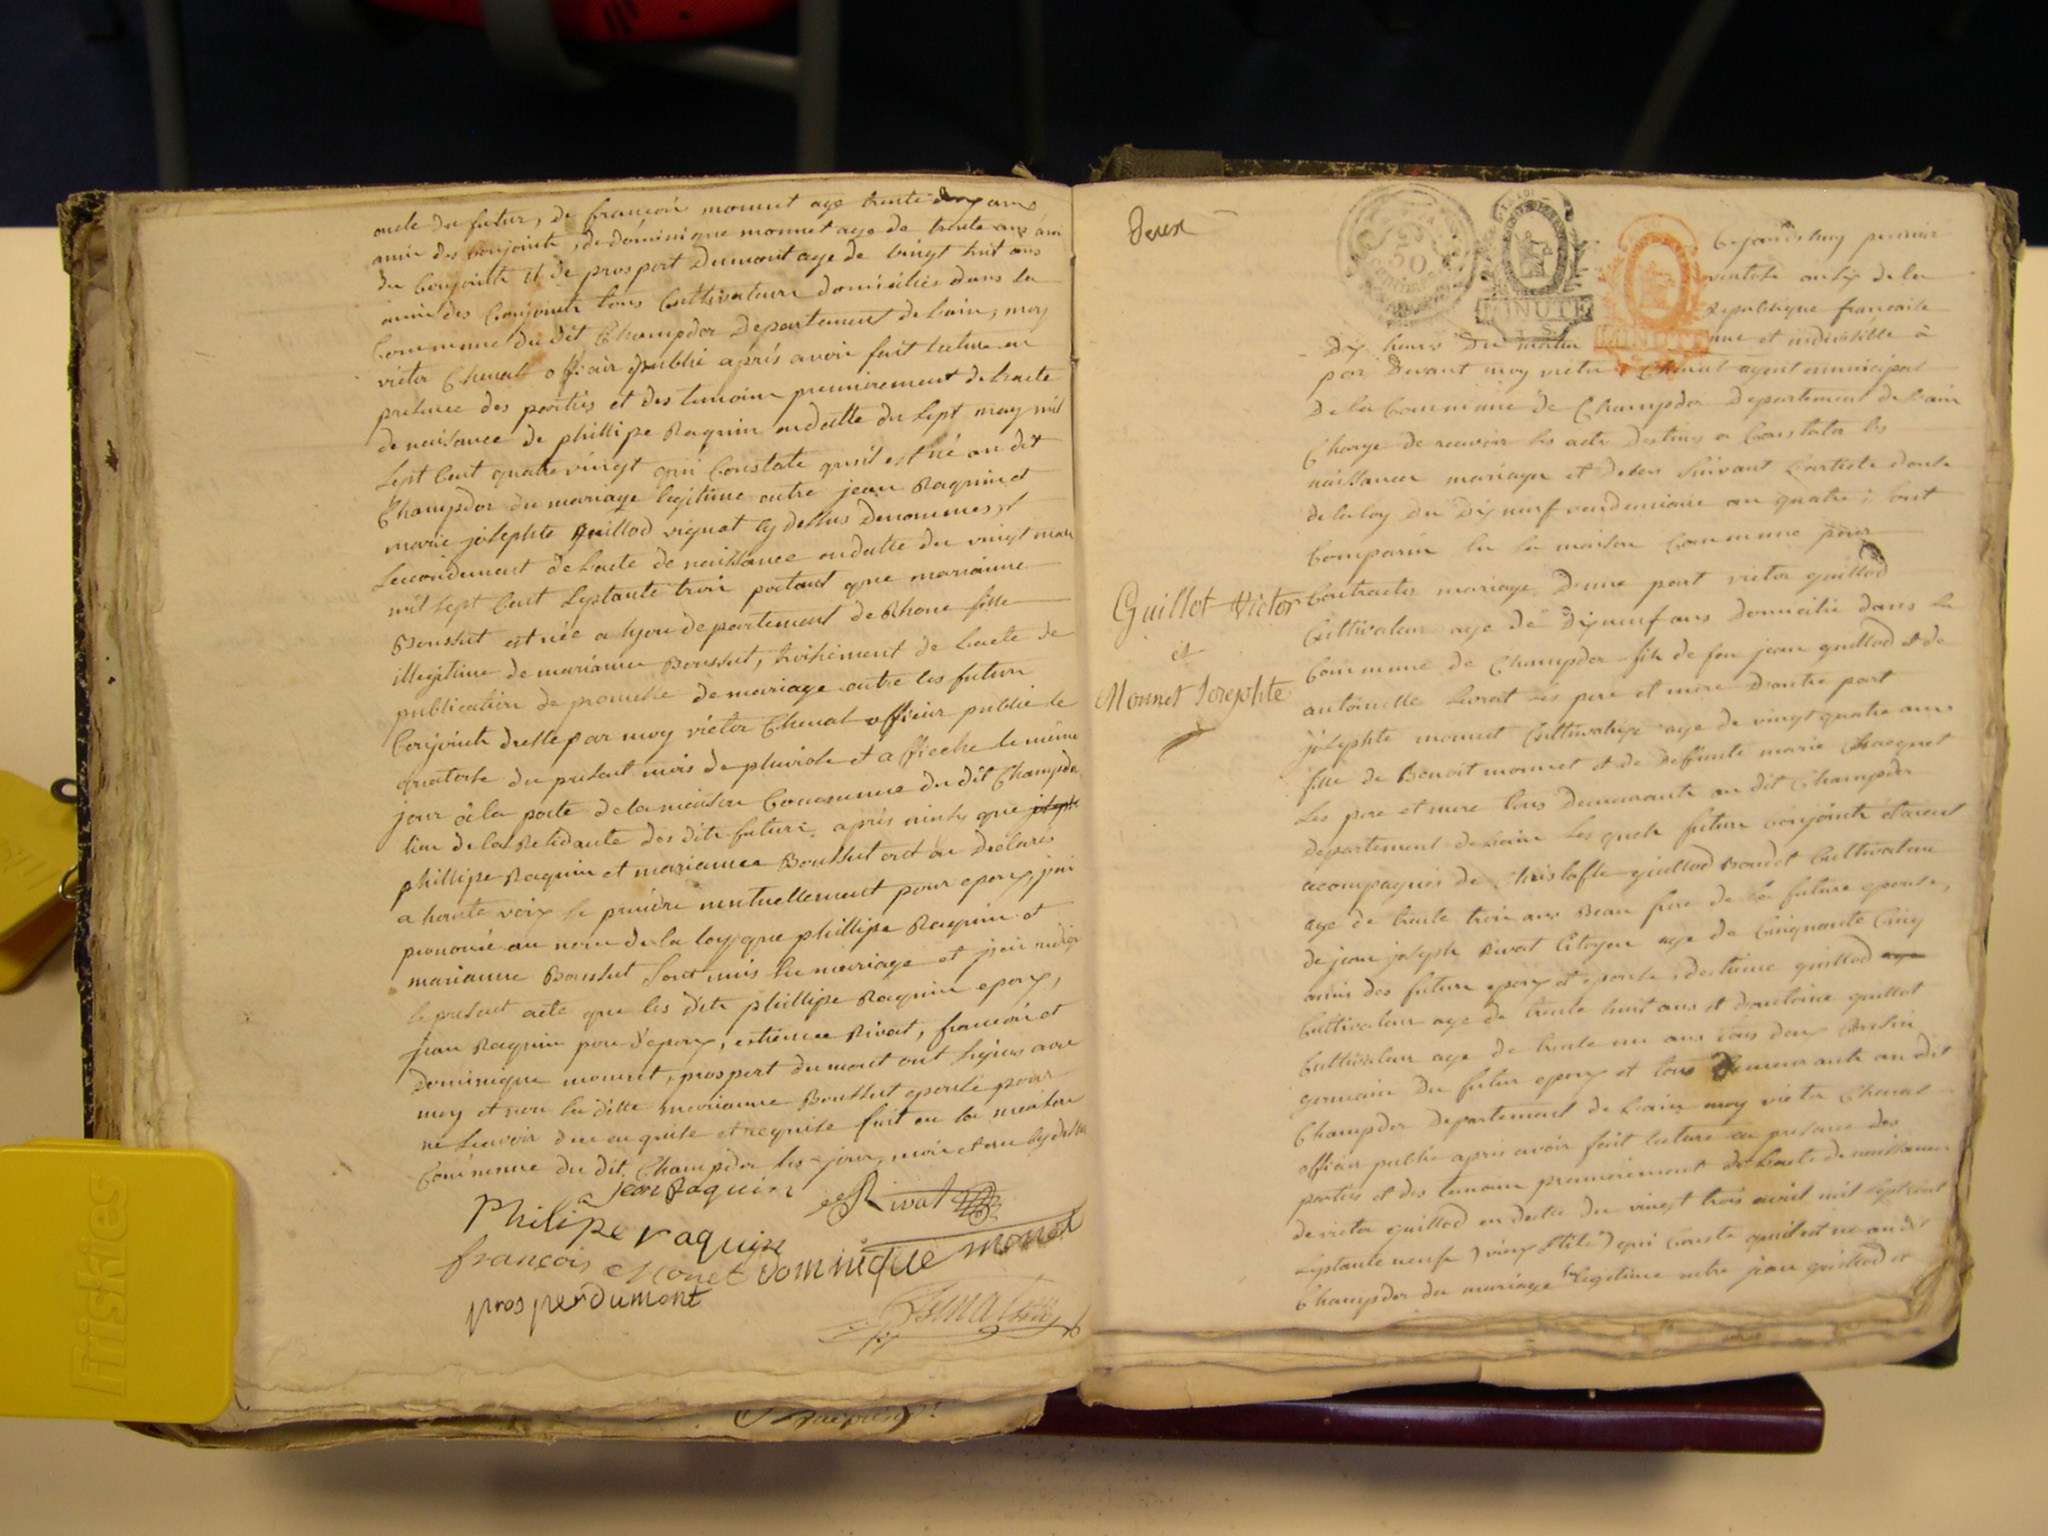 oncle du futur, de francois monnet age trente ans
amis des conjoints, de dominique monnet age de trente ans ami
du conjoints et de prospert Dumont age de vingt huit ans
amis des Conjoints tous Cultivateurs domiciliés dans la
Commune du dit Champdor Departement de l'ain, moy
victor Chenal officier publié aprés avoir fait lecture en
presence des parties et des temoins premierement de l'acte
de naisance de phillipe Raquin en datte du sept may mil
sept Cent quatrevingt qui Constate qu'il est né au dit
Champdor du mariage legitime entre jean Raquin et
marie josephte guillod vignat cy dessus denommes, et
secondement de l'acte de naissance en datte du vingt mars
mil sept Cent septante trois portant que marianne
Boussut est née a lyon departement de Rhone fille
illegitime de marianne Boussut, troisiement de l'acte de
publication de promesse de mariage entre les futurs
Conjoints dressé par moy victor Chenal officier publié le
quatorse du present mois de pluviose et affiché le même
jour à la porte de la maison Commune du dit Champdor
lieu de la Residante des dits futurs, aprés aussy que
phillipe Raquin et marianne Boussut ont eu déclarés
a haute voix se prendre mutuellement pour epoux, j'ai
prononcé au nom de la loy que phillipe Raquin et
marianne Boussut sont unis en mariage et j'ai redigé
le present acte que les dits phillipe Raquin epoux,
jean Raquin pere d'epoux, estienne Rivat, francois et
dominique monnet, prospert dumont ont signes avec
moy et non la ditte marianne Boussut epouse pour
ne scavoir de ce enquise et requise fait en la maison
Commune du dit Champdor les jour, mois et an cy dessus
jean Raquin
Philipe raquin eRivat
françois Monet Dominique monet
prosper dumont
Chenal
deux
MINUTE
MINUTE
Cejourd'huy premier
ventose an six de la
Republique francaise
une et indivisible à
Dix heures du matin
par devant moy victor Chenal agent municipal
de la Commune de Champdor Departement de l'ain
Charge de recevoir les acte destines a Constater les
naissances mariages et deces suivant l'article douse
de la loy du dix neuf vendemiaire an quatre; sont
Comparus en la maison Commune pour
Contracter mariage, D'une part victor guillod
Guillot Victor
et
Monnet Josephte
Cultivateur age de dix neuf ans domicilié dans la
Commune de Champdor fils de feu jean guillod et de
antoinette Livrat ses pere et mere D'autre part
josephte monnet Cultivatrice age de vingt quatre ans
fille de Benoit monnet et de deffunte marie
Les pere et mere tous demeurants au dit Champdor
departement de l'ain les quels futurs conjoints etoient
acompagnés de Christofle guillod Cultivateur
age de trente trois ans Beau frere de la future epouse,
de jean joseph Rivat Citoyen age de Cinquante Cinq
amis des futurs epoux et epouse, d'estienne guillod
Cultivateur age de trente huit ans et d'antoine guillot
Cultivateur age de trente un ans tous deux Cousin
germains du futur epoux et tous demeurants au dit
Champdor Departement de l'ain, moy victor Chenal
officier publié apres avoir fait lecture en presence des
parties et des temoins premierement de l'acte de naissance
de victor guillod en datte du vingt trois avril mil sept cent
septante neuf (vieux stile) qui Conste qu'il est né au dit
Champdor du mariage legitime entre jean guillod et
Friskies